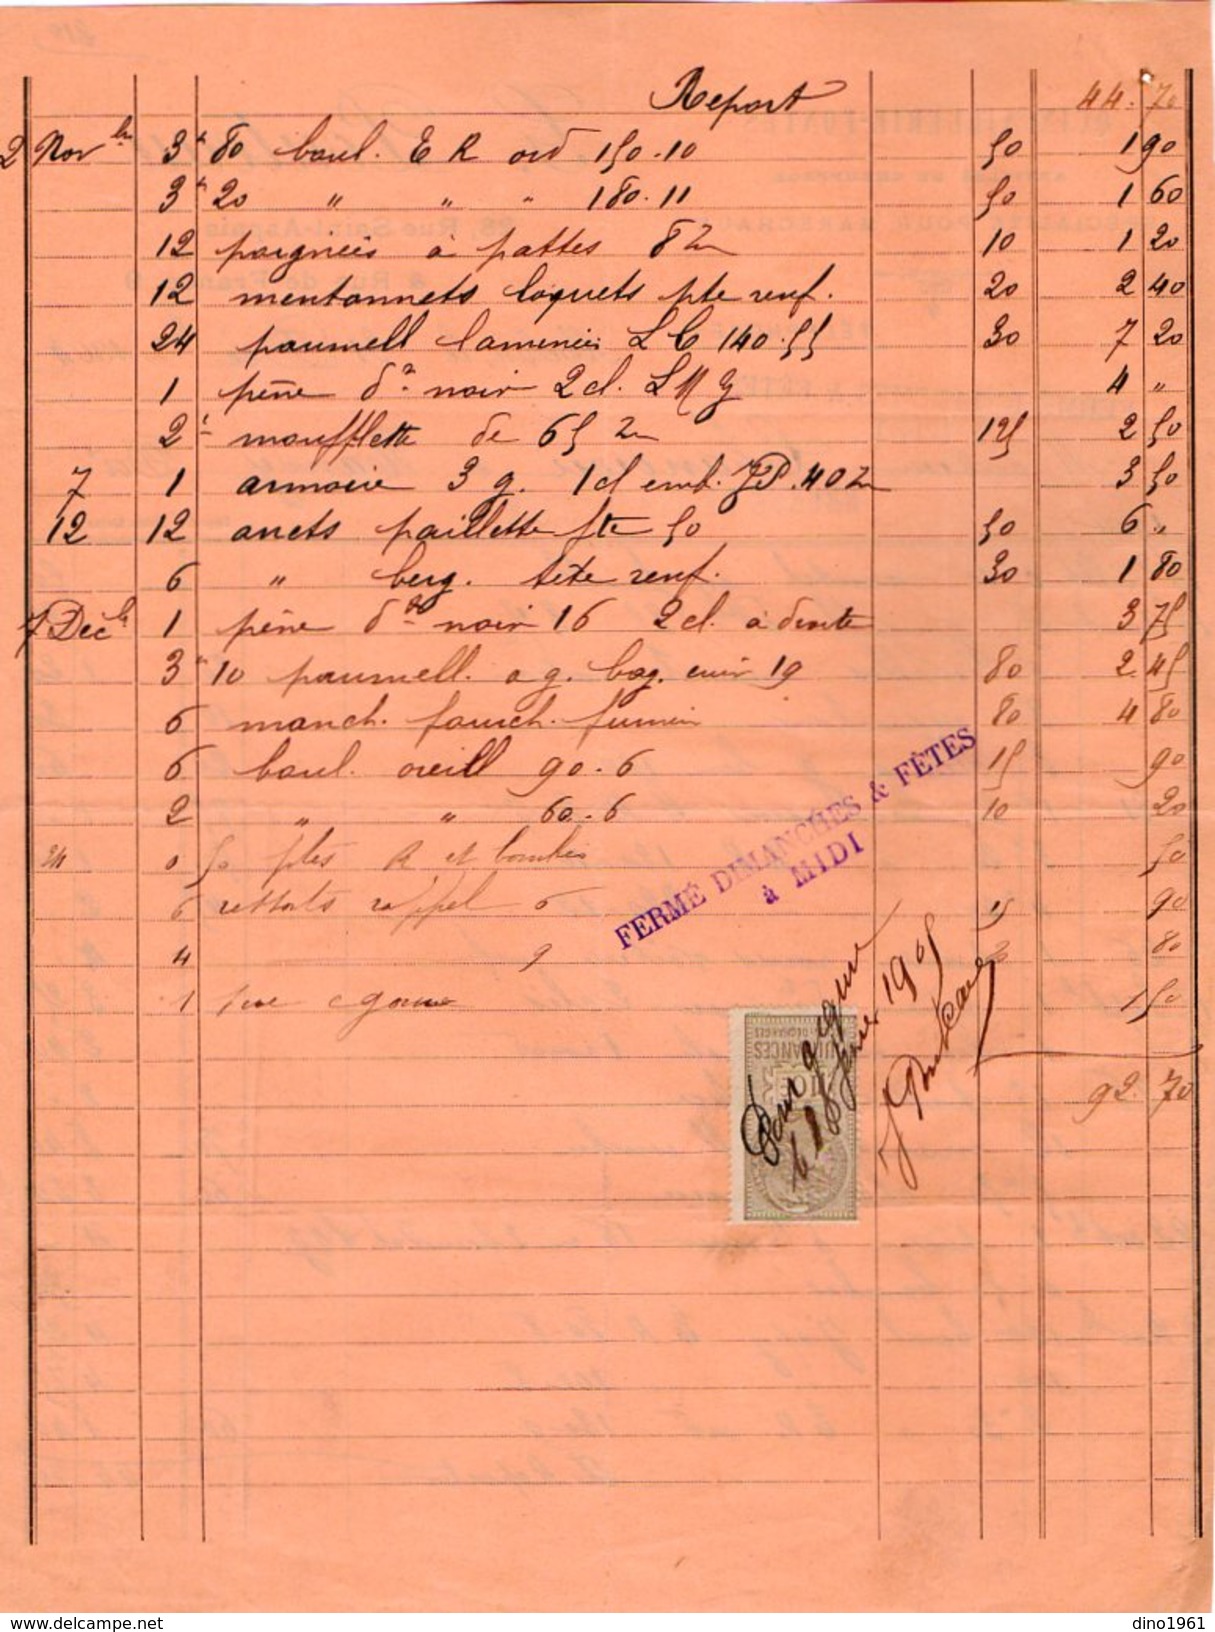 Report 44. 70
2 Nov bre 3 k 80 boul. E R ord 150.10 50 1 90
3 k 20 " " " 180.11 50 1 60
12 poignées à pattes 8 10 1 20
12 mentonnets loquets pte renf. 20 2 40
24 paumell laminées L C 140.55 30 7 20
1 pêne dr noir 2 cl. 4 "
2 moufflette de 65 125 2 50
7 1 armoire 3 g. 1 cl emb. 40 3 50
12 12 arrets paillette fte 50 50 6 "
6 " berg. tête renf. 30 1 80
7 Déc bre 1 pêne dr noir 16 2 cl. à droite 3 75
3 10 paumell. a g. bag. cuiv 19 80 2. 45
6 manch. fourch. fumier 80 4 80
6 boul. oreill 90.6 15 90
2 " " 60.6 10 20
24 0 50 ptes R. et bombées 50
6 ressorts rappel 6 15 90
4 9 80
1 gorme 1 50
92. 70
FERMÉ DIMANCHES & FÊTES
à MIDI
QUITTANCES
Pour acquit
le 18 Janvier 1905
www.delcampe.net
dino1961